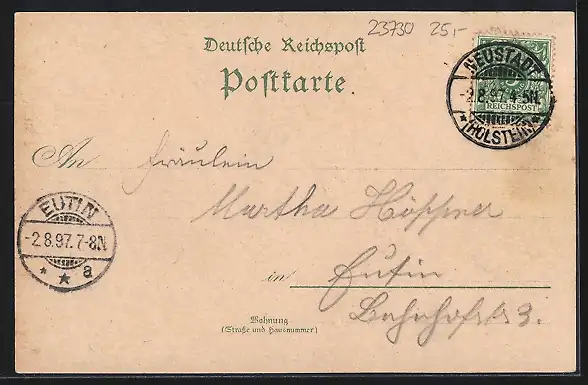 23730 25,-
Deutsche Reichspost
Postkarte
NEUSTADT
-2.8.97.4-5N.
* (HOLSTEIN) *
REICHSPOST
An Fräulein
Martha Höppner
EUTIN
-2.8.97.7-8N
* * a
in Eutin
Wohnung
(Straße und Hausnummer)
Bahnhofstr 3.